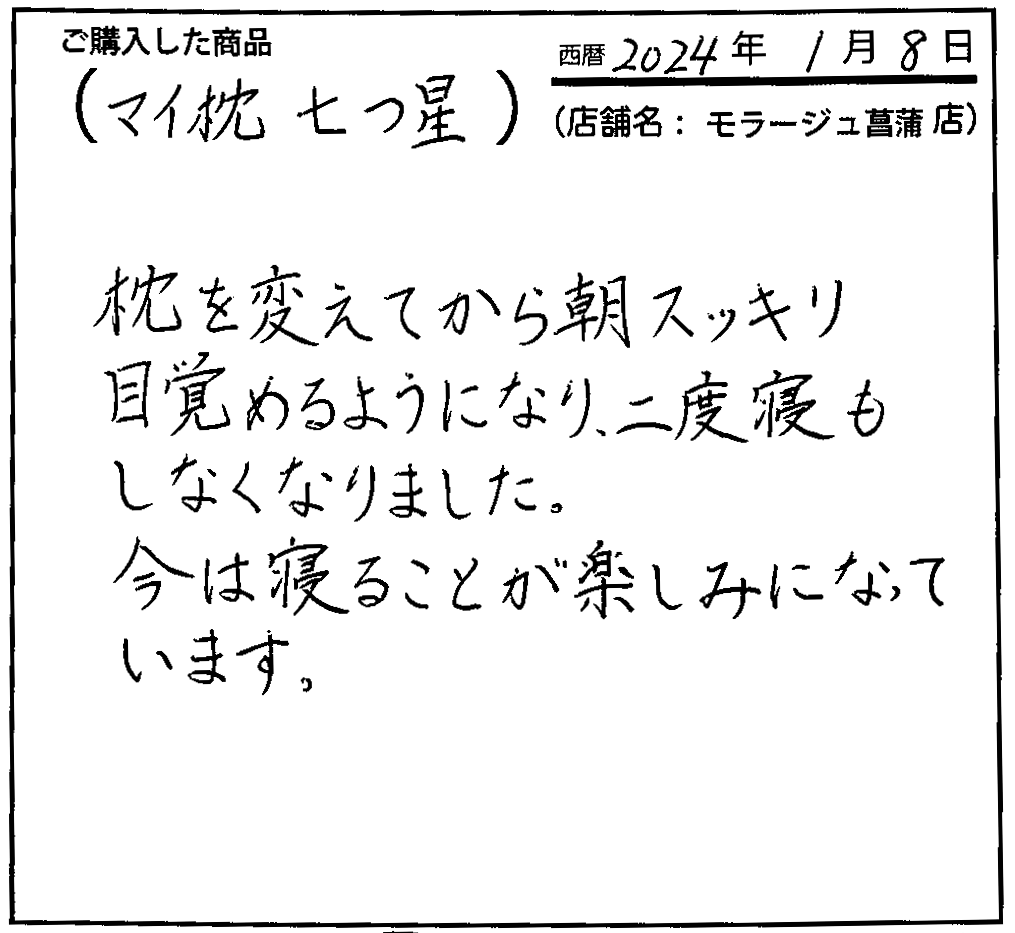 ご購入した商品
西暦 2024年 1月8日
(マイ枕 七つ星)
(店舗名:モラージュ菖蒲 店)
枕を変えてから朝スッキリ
目覚めるようになり、二度寝も
しなくなりました。
今は寝ることが楽しみになって
います。